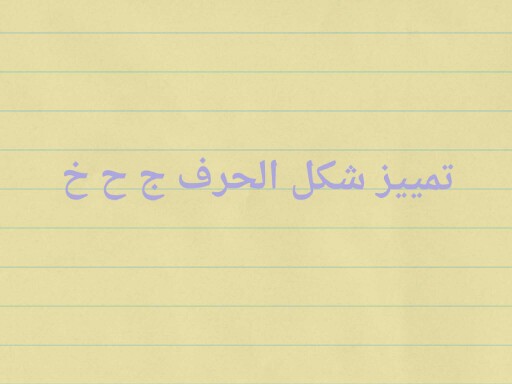 تمييز شكل الحرف ج ح خ